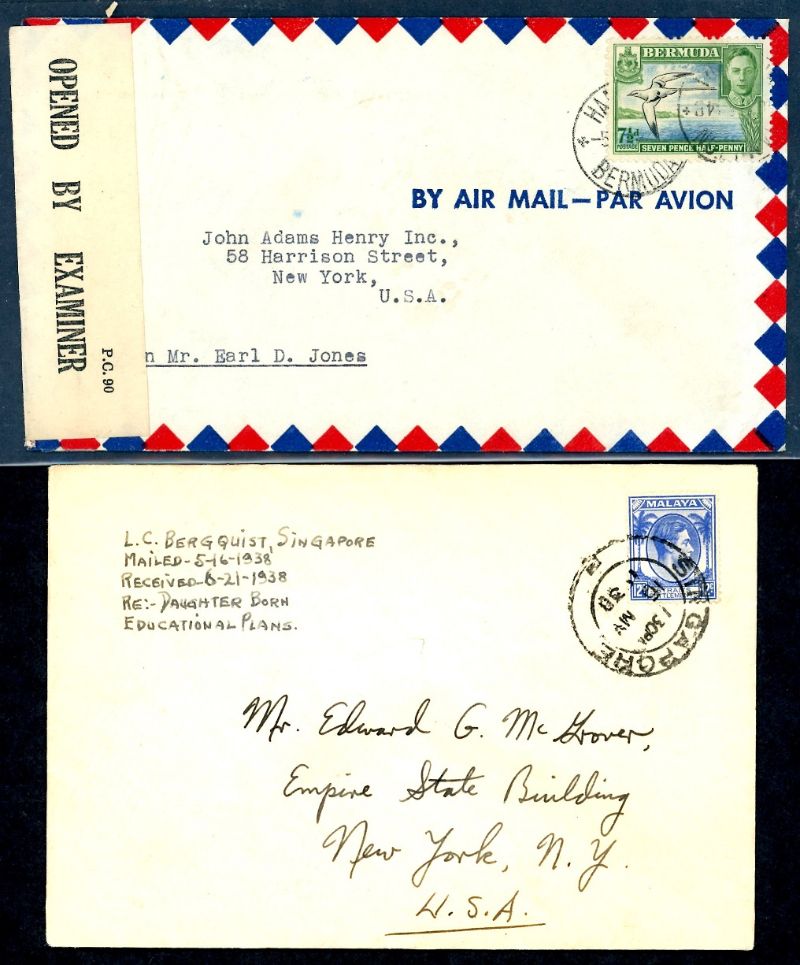 OPENED BY EXAMINER
P.C. 90
BERMUDA
7½d
POSTAGE
SEVEN PENCE HALF-PENNY
BERMUDA
BY AIR MAIL—PAR AVION
John Adams Henry Inc.,
58 Harrison Street,
New York,
U.S.A.
n Mr. Earl D. Jones
L.C. BERGQUIST, SINGAPORE
MAILED-5-16-1938
RECEIVED-6-21-1938
RE:- DAUGHTER BORN
EDUCATIONAL PLANS.
MALAYA
SINGAPORE
1 30PM
MY
Mr. Edward G. McGrover,
Empire State Building
New York, N.Y.
U.S.A.